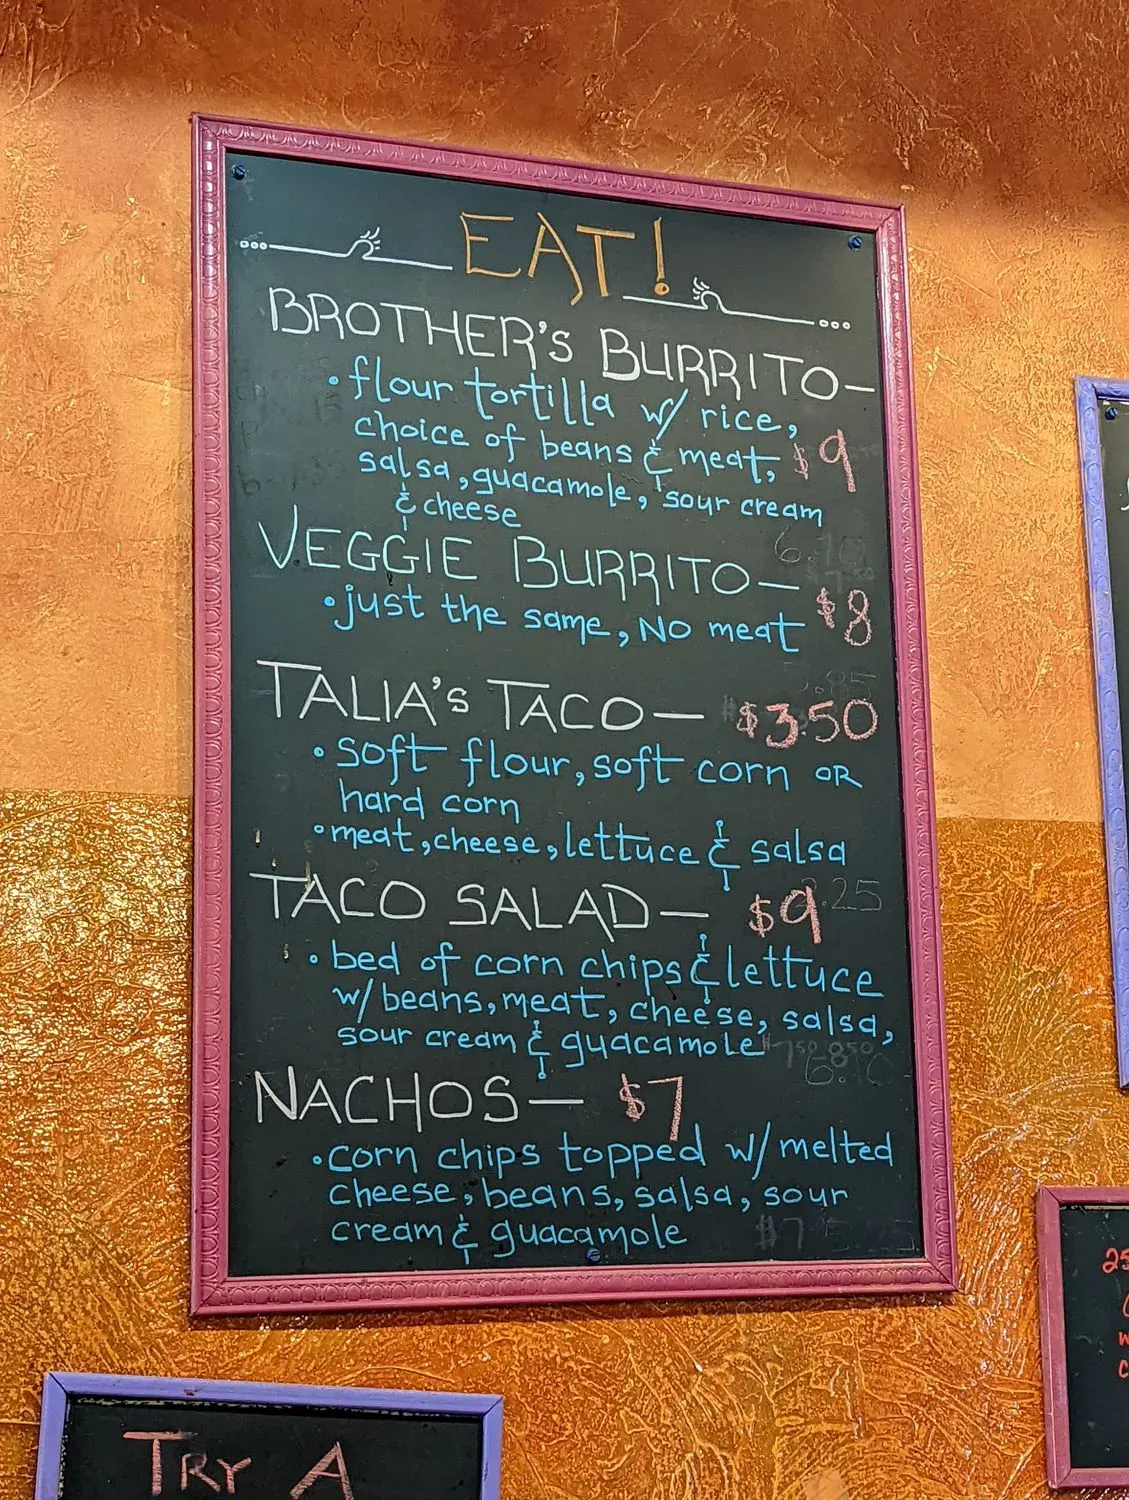 EAT!
BROTHER'S BURRITO—
• flour tortilla w/ rice,
choice of beans & meat, $9
salsa, guacamole, sour cream
& cheese
VEGGIE BURRITO— $8
• just the same, NO meat
TALIA'S TACO— $3.50
• soft flour, soft corn OR
hard corn
• meat, cheese, lettuce & salsa
TACO SALAD— $9
• bed of corn chips & lettuce
w/ beans, meat, cheese, salsa,
sour cream & guacamole
NACHOS— $7
• corn chips topped w/ melted
cheese, beans, salsa, sour
cream & guacamole
TRY A